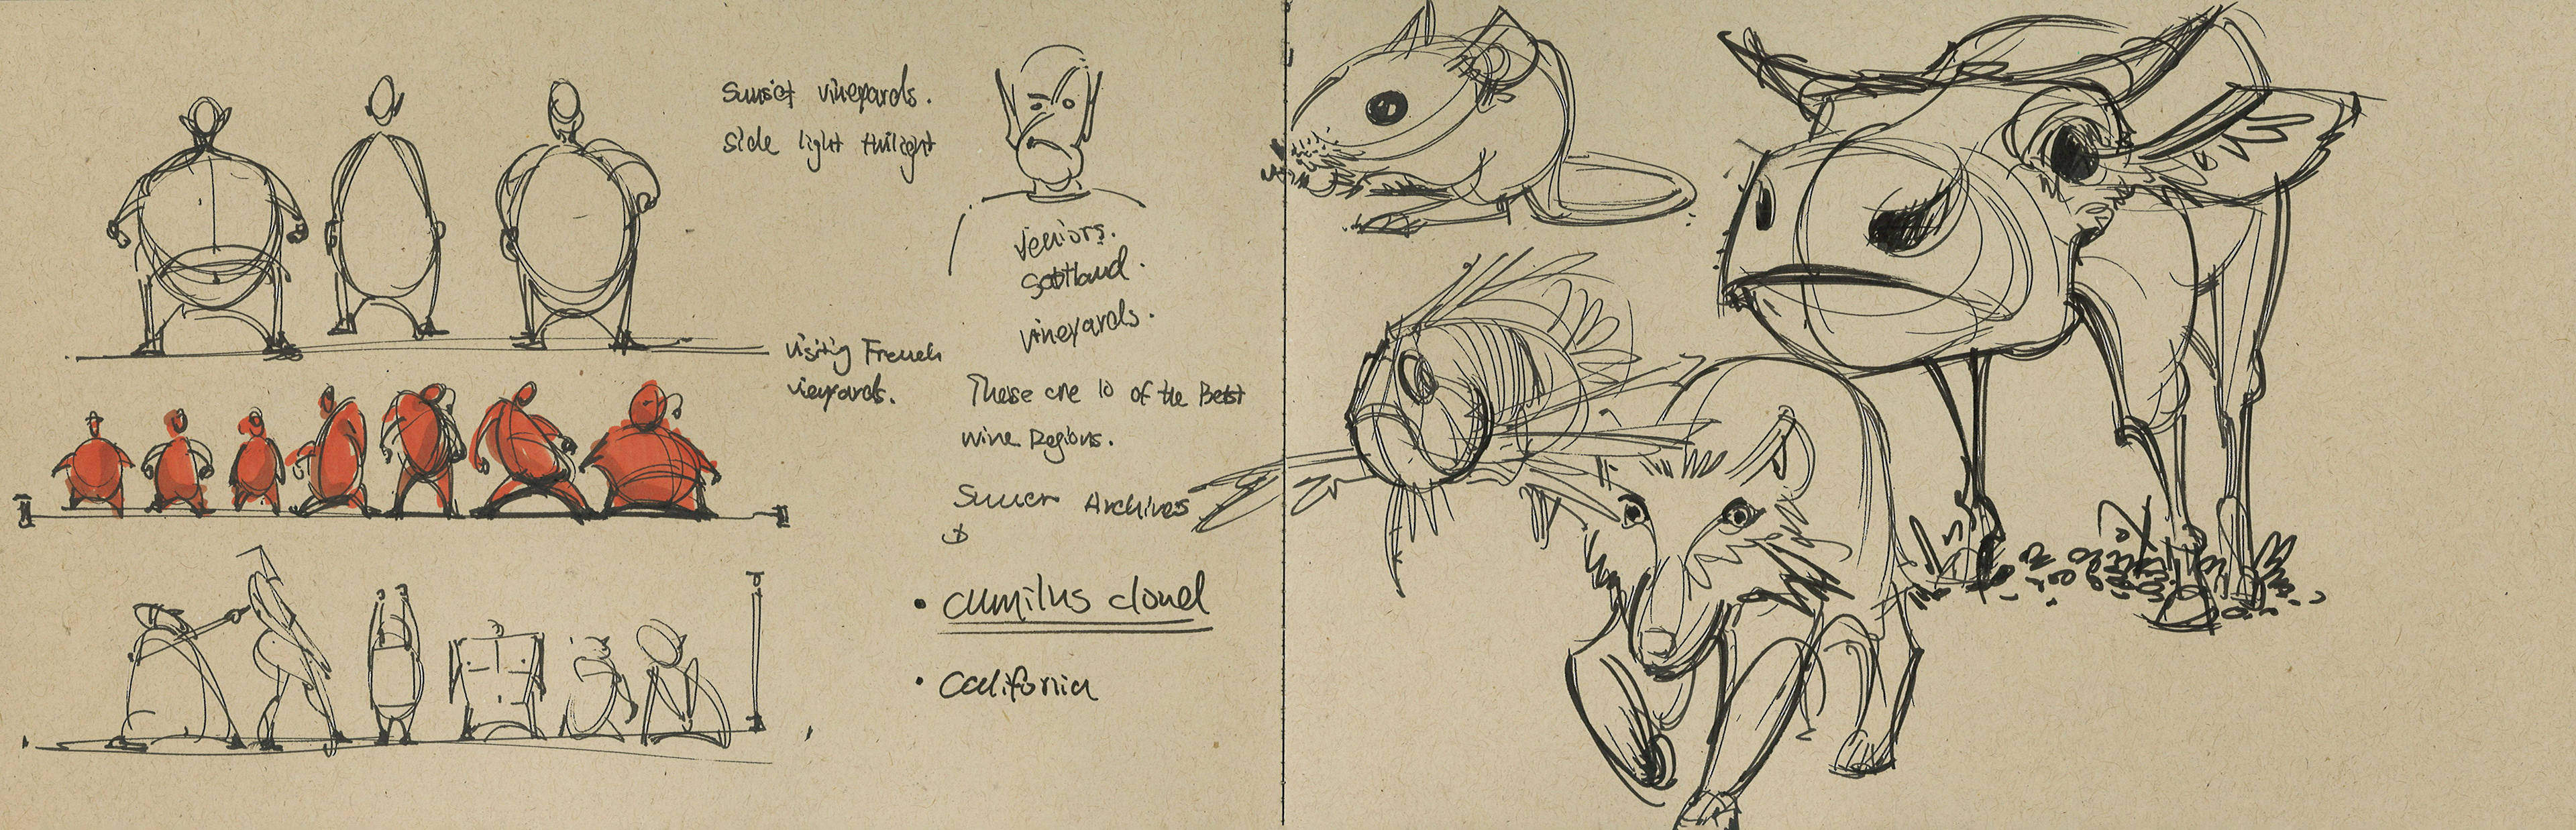 Sunset vineyards.
side light twilight
Scotland.
vineyards.
Visitig French
vieyards.
These are 10 of the Betst
wine Regions.
Archives
• cumilus cloud
• California